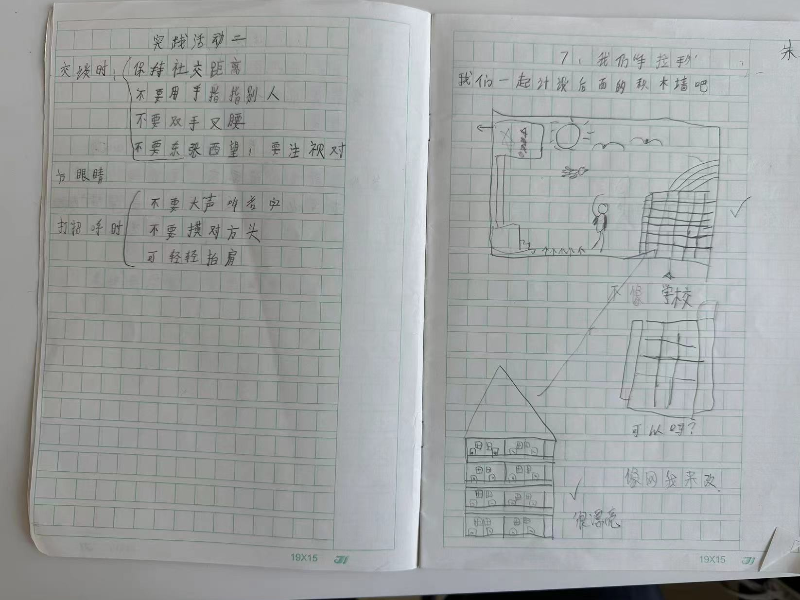 实践活动二
交谈时：保持社交距离
不要用手指指别人
不要双手叉腰
不要东张西望，要注视对
方眼睛
打招呼时 不要大声叫喊
不要摸对方头
可轻轻拍肩
19X15
7、我们手拉手
我们一起计设后面的积木墙吧
朱
不像学校
可以吗？
像网红来改
很漂亮
19X15